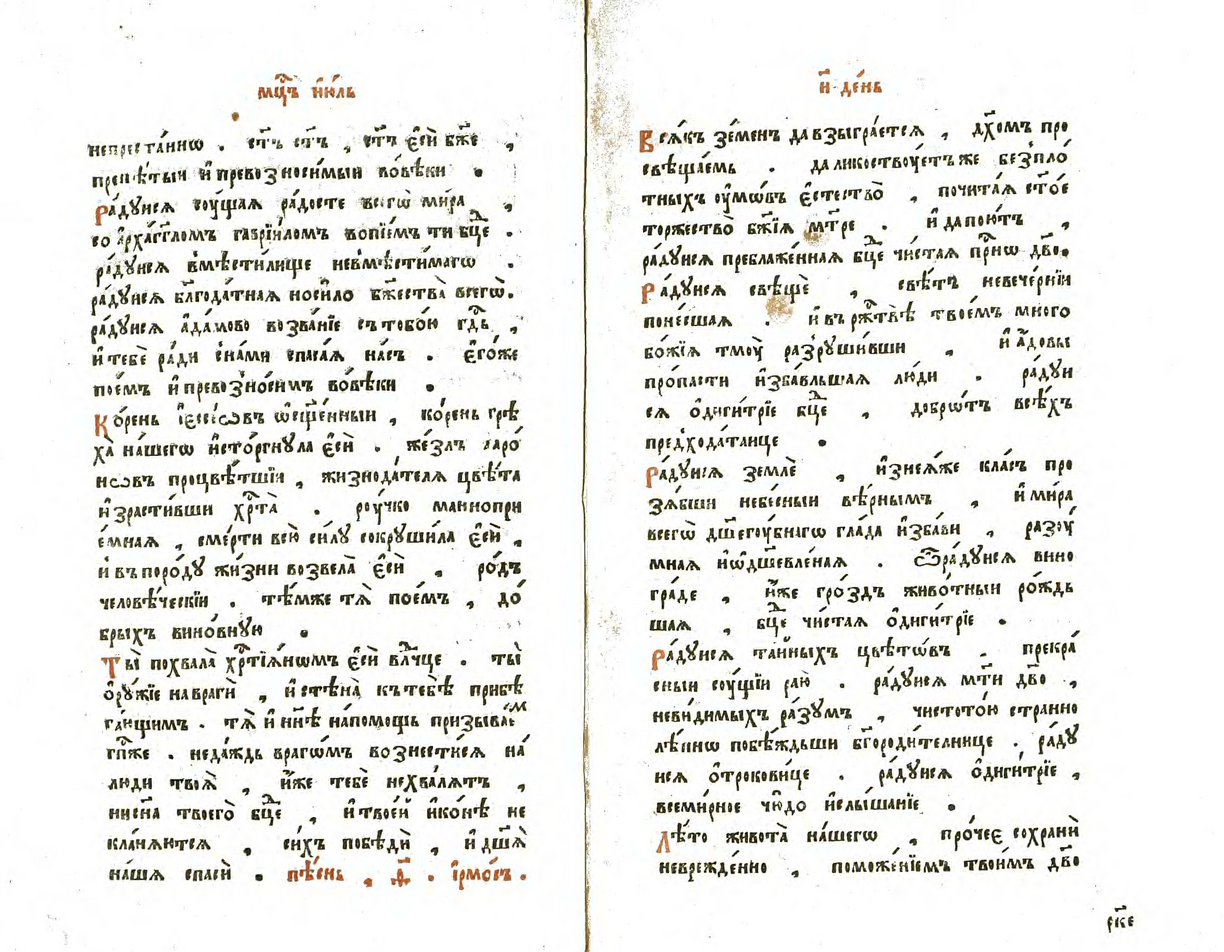 мцⷭ҇ъ і҆ю́ль
непреста́ннѡ . ст҃ъ ст҃ъ , ст҃ъ є҆сѝ бж҃е ,
препѣ́тыи и҆ превозноси́мыи во́вѣки .
Ра́дуисѧ сꙋ́щаѧ ра́досте всегѡ̀ ми́ра ,
со а҆рха́гг҃ломъ гаврїи́ломъ вопїе́мъ ти бц҃е .
ра́дꙋисѧ вмѣсти́лище невмѣсти́магѡ .
ра́дꙋисѧ бл҃года́тнаѧ носи́ло бж҃ества̀ всегѡ̀.
ра́дꙋисѧ а҆да́мово возва́нїе стобо́ю гдⷭ҇ь ,
и҆ тебѐ ра́ди сна́ми спаса́ѧ на́съ . є҆го́же
пое́мъ и҆ превозно́симъ во́вѣки .
Ко́рень і҆ессе́ѡвъ ѡ҆сщ҃е́нныи , ко́рень грѣ
ха̀ на́шегѡ и҆сто́ргнула є҆сѝ . же́злъ ааро́
нѡвъ процвѣ́тшїи , жизнода́телѧ цвѣ́та
и҆зрасти́вши хрⷭ҇та̀ . рꙋ́чко маннопри
е́мнаѧ , сме́рти всю̀ си́лꙋ сокрꙋши́ла є҆сѝ ,
и҆ въ поро́дꙋ жи́зни возвела̀ є҆сѝ , ро́дъ
человѣ́ческїи . тѣ́мже тѧ̀ пое́мъ , до́
брыхъ вино́внꙋю .
Ты̀ похвала̀ хрⷭ҇тїѧ́нѡмъ є҆сѝ влⷣчце . ты̀
ѻ҆рꙋ́жїе на врагѝ , и҆ стѣна̀ къ тебѣ̀ прибѣ
га́ющимъ . тѧ̀ и҆ нн҃ѣ на́помощь призыва́емъ
гп҃же . неда́ждь врагѡ́мъ вознестисѧ на́
лю́ди твоѧ̀ , и҆́же тебѐ нехва́лѧтъ ,
ни сн҃а твоего̀ бц҃е , и҆ твое́й и҆ко́нѣ не
кла́нѧютсѧ , си́хъ побѣдѝ , и҆ дш҃а̀
на́шѧ спасѝ . пѣ́снь , ѳ҃ . і҆рмо́съ .
и҃ де́нь
Всѧ́къ зе́менъ да взыгра́етсѧ , дх҃омъ про
свѣща́емь . да ликовствꙋ́етъ же безпло́
тныхъ ᲂу҆мѡ́въ є҆стество̀ , почита́ѧ ст҃о́е
торжество̀ бж҃їѧ мт҃ре . и҆ да пою́тъ ,
ра́дꙋисѧ преблаже́ннаѧ бц҃е чи́стаѧ прⷭ҇нѡ дв҃о.
Ра́дꙋисѧ свѣщѐ , свѣ́тъ невече́рнїи
поне́сшаѧ . и҆ въ ржⷭ҇твѣ̀ твое́мъ много
бо́жїѧ тмꙋ̀ разрꙋши́вши , и҆ а҆́довы
про́пасти и҆зба́вльшаѧ лю́ди . ра́дꙋи
сѧ ѻ҆диги́трїе бц҃е , добрѡ́тъ всѣ́хъ
предхода́таице .
Ра́дꙋисѧ землѐ , и҆знеѧ́же кла́съ про
зѧ́бши небе́сныи вѣ́рнымъ , и҆ ми́ра
всегѡ̀ дш҃егꙋ́бнагѡ гла́да и҆зба́ви , разꙋ́
мнаѧ и҆ѡ҆дш҃евле́наѧ . Ѽра́дꙋисѧ вино
гра́де , и҆́же гро́здъ живо́тныи ро́ждь
шаѧ , бц҃е чи́стаѧ ѻ҆диги́трїе .
Ра́дꙋисѧ та́йныхъ цвѣтѡ́въ . прекра́
сныи сꙋ́щїи раю̀ . ра́дꙋисѧ мт҃и дв҃о ,
неви́димыхъ ра́зꙋмъ , чистото́ю стра́нно
лѣ́пнѡ побѣ́ждьши бг҃ороди́телнице . ра́дꙋ
исѧ ѻ҆трокови́це . ра́дꙋисѧ ѻ҆диги́трїе ,
всеми́рное чю́до и҆ слы́шанїе .
Лѣ́то живота̀ на́шегѡ , про́чеє сохранѝ
невреже́нно , поможе́нїемъ твои́мъ дв҃о
є҆́же